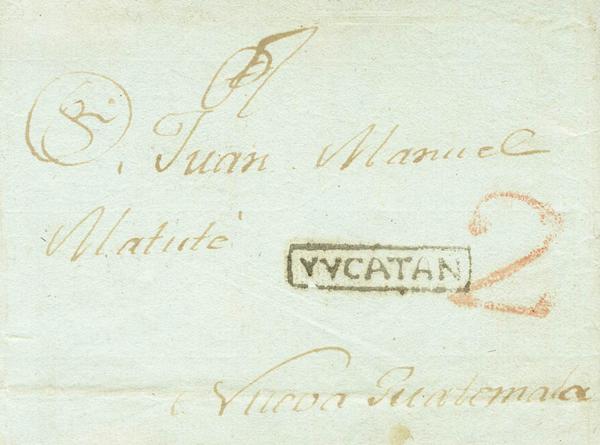 Juan Manuel
Matuté
YVCATAN 2
Nueva Guatemala